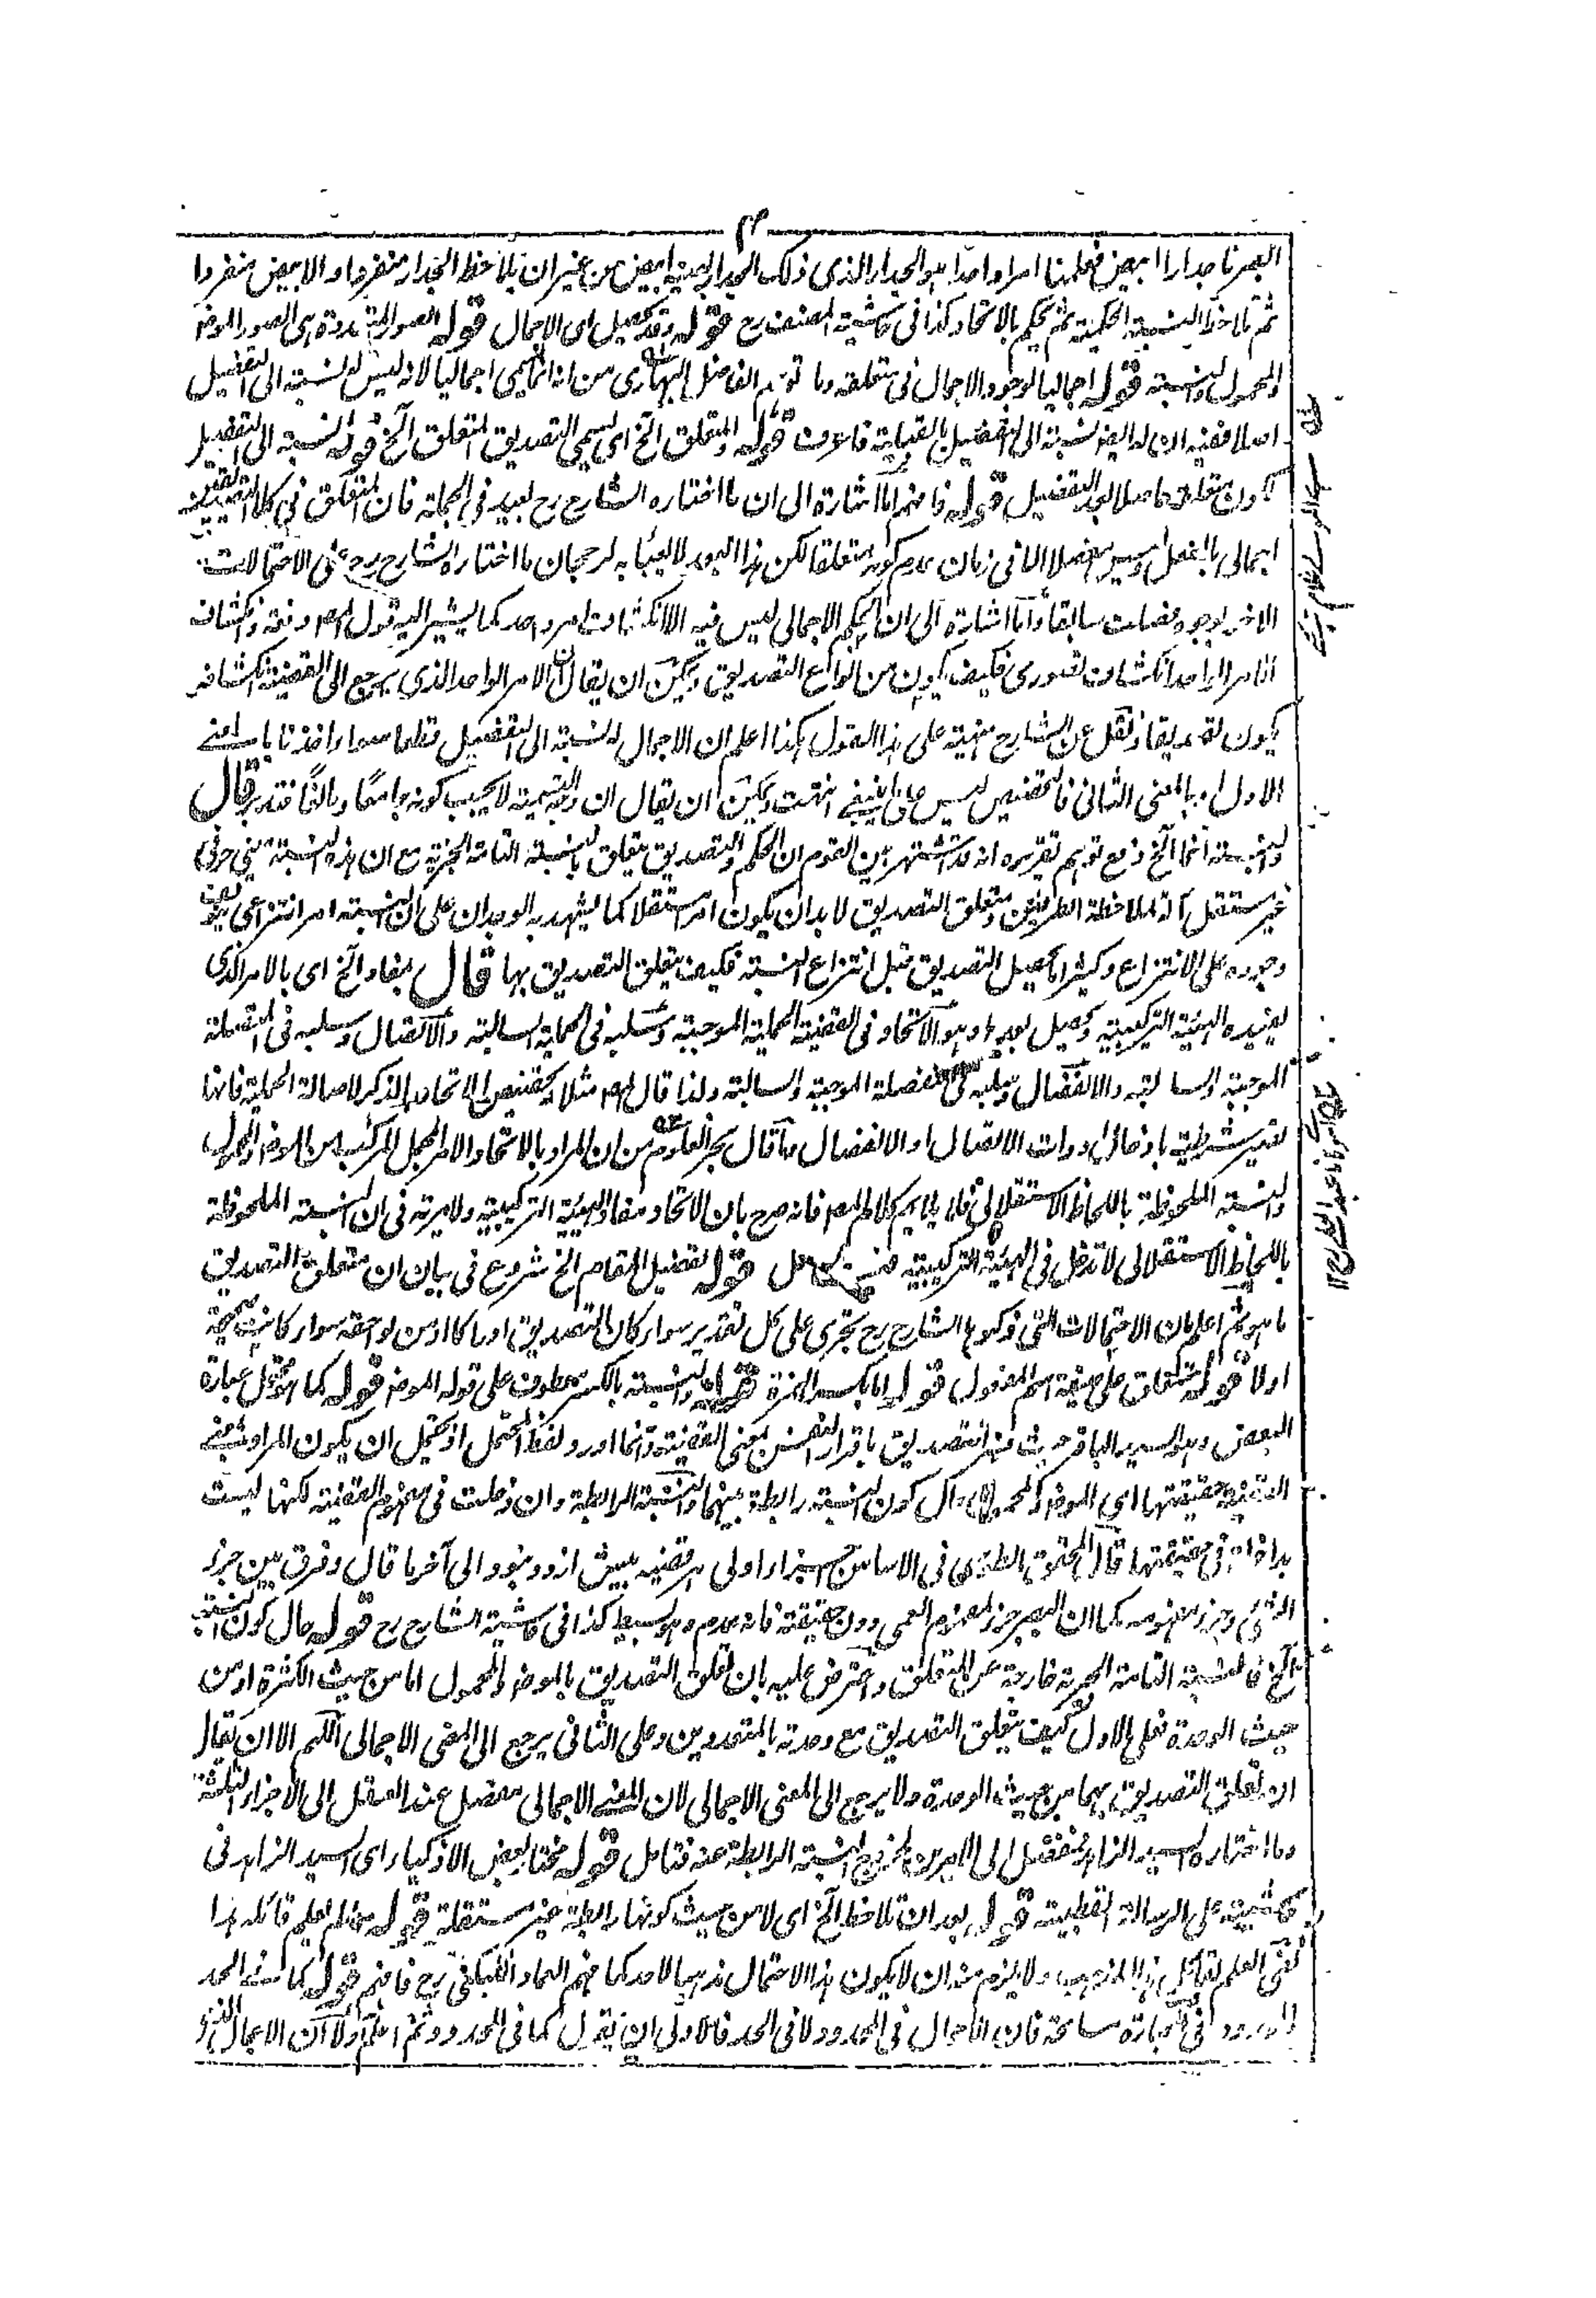 ابصرنا جدارا ابيض فعلمنا امرا واحدا هو الجدار الذى ذلك الجدار بعينه ابيض من غير ان نلاحظ الجدار منفردا والابيض منفردا
ثم نلاحظ النسبة الحكمية ثم نحكم بالاتحاد كذا فى حاشية المصنف رح قوله وقد يحصل اى الاجمال قوله الصور المتعددة هى الصور الموضوع
والمحمول والنسبة قوله اجماليا لوجود الاجمال فى متعلقه وما توهم الفاضل البهارى من انه انما سمى اجماليا لانه ليس له نسبة الى التفصيل
اصلا ففيه ان له ايضا نسبة الى التفصيل بالقياية فاعرف قوله والمتعلق الخ اى يسمى التصديق المتعلق الخ قوله نسبة الى التفصيل
متعلقه حاصلا بعد التفصيل قوله فافهم اما اشارة الى ان ما اختاره الشارح رح بعيد فى الجملة فان المتعلق فى كلا التصديقين
اجمالى بالفعل ويصير مفصلا الثانى زمان عدم كونه متعلقا لكن هذا البعد لا يعبأ به لرجحان ما اختاره الشارح رح على الاحتمالات
الاخر بوجوه فصلت سابقا واما اشارة الى ان الحكم الاجمالى ليس فيه الا انكشاف امر واحد كما يشير اليه قول المصـ دفعة وانكشاف
الامر الواحد انكشاف تصورى فكيف يكون من انواع التصديق ويمكن ان يقال ان الامر الواحد الذى يرجع الى القضية انكشافه
يكون تصديقا ونقل عن الشارح منهية على هذا القول هكذا اعلم ان الاجمال له نسبة الى التفصيل قطعا سواء اخذنا بالمعنى
الاول او بالمعنى الثانى فالتخصيص ليس على ما ينبغى انتهت ويمكن ان يقال ان وجه التسمية لا يجب كونه جامعا ومانعا فتدبر قال
والنسبة انما الخ دفع توهم تقريره انه قد اشتهر بين القوم ان الحكم والتصديق يتعلق بالنسبة التامة الخبرية مع ان هذه النسبة معنى حرفى
غير مستقل آلة لملاحظة الطرفين ومتعلق التصديق لا بد ان يكون امرا مستقلا كما يشهد به الوجدان على ان النسبة امر انتزاعى يتوقف
وجوده على الانتزاع وكثيرا ما يحصل التصديق قبل انتزاع النسبة فكيف يتعلق التصديق بها قال بمفاد الخ اى بالامر الذى
يفيده الهيئة التركيبية ويحصل بعدها وهو الاتحاد فى القضية الحملية الموجبة وسلبه فى الحملية السالبة والاتصال وسلبه فى المتصلة
الموجبة والسالبة والانفصال وسلبه فى المنفصلة الموجبة والسالبة ولذا قال المصـ مثلا وتخصيص الاتحاد بالذكر لاصالة الحملية فانها
تصير شرطية بادخال ادوات الاتصال او الانفصال وما قال بحر العلوم من ان المراد بالاتحاد الامر المجمل المركب من الموضوع والمحمول
والنسبة الملحوظة باللحاظ الاستقلالى فلا يلايم كلام المصـ فانه صرح بان الاتحاد مفاد الهيئة التركيبية ولا مرية فى ان النسبة الملحوظة
باللحاظ الاستقلالى لا تدخل فى الهيئة التركيبية قوله تفصيل المقام الخ شروع فى بيان ان متعلق التصديق
ما هو ثم اعلم ان الاحتمالات التى ذكرها الشارح رح تجرى على كل تقدير سواء كان التصديق ادراكا او من لواحقه سواء كانت صحيحة
اولا قوله متعلق على صيغة اسم المفعول قوله اما بكسر الهمزة قوله والنسبة بالكسر معطوف على قوله الموضوع قوله كما هو محتمل عبارة
البعض وهو السيد الباقر حيث فسر التصديق باقرار النفس بمعنى القضية وانما اورد لفظ المحتمل اذ يحتمل ان يكون المراد بمعنى
القضية حقيقتها اى الموضوع والمحمول حال كون النسبة رابطة بينهما والنسبة الرابطة وان دخلت فى مفهوم القضية لكنها ليست
بداخلة فى حقيقتها قال المحقق الطوسى فى الاساس اجزاء اولى هر قضيه بيش از دو نبود الى آخر ما قال وفرق بين جزء
الشئ وجزء مفهومه كما ان البصر جزء لمفهوم العمى دون حقيقته فانه عدم وهو بسيط كذا فى حاشية الشارح رح قوله حال كون النسبة
الخ فالنسبة التامة الخبرية خارجة عن المتعلق واعترض عليه بان تعلق التصديق بالموضوع والمحمول اما من حيث الكثرة او من
حيث الوحدة فعلى الاول كيف يتعلق التصديق مع وحدته بالمتعددين وعلى الثانى يرجع الى المعنى الاجمالى اللهم الا ان يقال
ان تعلق التصديق بهما من حيث الوحدة ولا يرجع الى المعنى الاجمالى لان المعنى الاجمالى مفصل عند العقل الى الاجزاء الثلثة
وما اختاره السيد الزاهد مفصل الى الامرين لخروج النسبة الرابطة عنه فتامل قوله مختار بعض الاذكياء اى السيد الزاهد فى
حاشيته على الرسالة القطبية قوله بعد ان تلاحظ الخ اى لا من حيث كونها رابطة غير مستقلة قوله مما لم يعلم قائله هذا
نفى العلم بقائل هذا المذهب ولا يلزم منه ان لا يكون هذا الاحتمال مذهبا لاحد كما فهم العماد اللبكنى رح فافهم قوله كما فى الحد
والمحدود فى العبارة مسامحة فان الاجمال فى المحدود ولا فى الحد فالاولى ان يقول كما فى المحدود ثم اعلم اولا ان الاجمال الذى